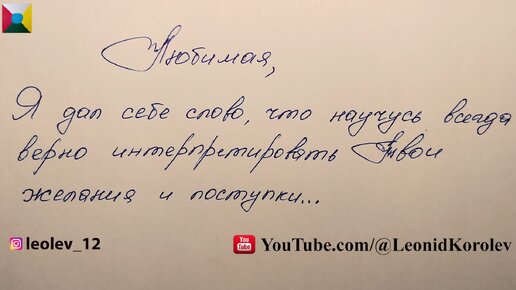 Любимая,
Я дал себе слово, что научусь всегда
верно интерпретировать Твои
желания и поступки...
leolev_12
YouTube.com/@LeonidKorolev